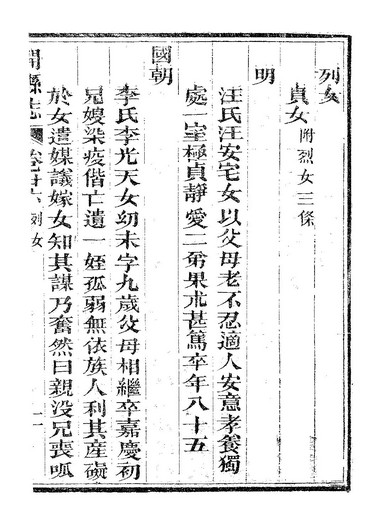 列女
貞女附烈女三條
明
汪氏汪安宅女以父母老不忍適人安意孝養獨
處一室極貞靜愛二弟果朮甚篤卒年八十五
國朝
李氏李光天女幼未字九歲父母相繼卒嘉慶初
兄嫂染疫偕亡遺一姪孤弱無依族人利其產礙
於女遣媒議嫁女知其謀乃奮然曰親没兄喪呱
開縣志 列女